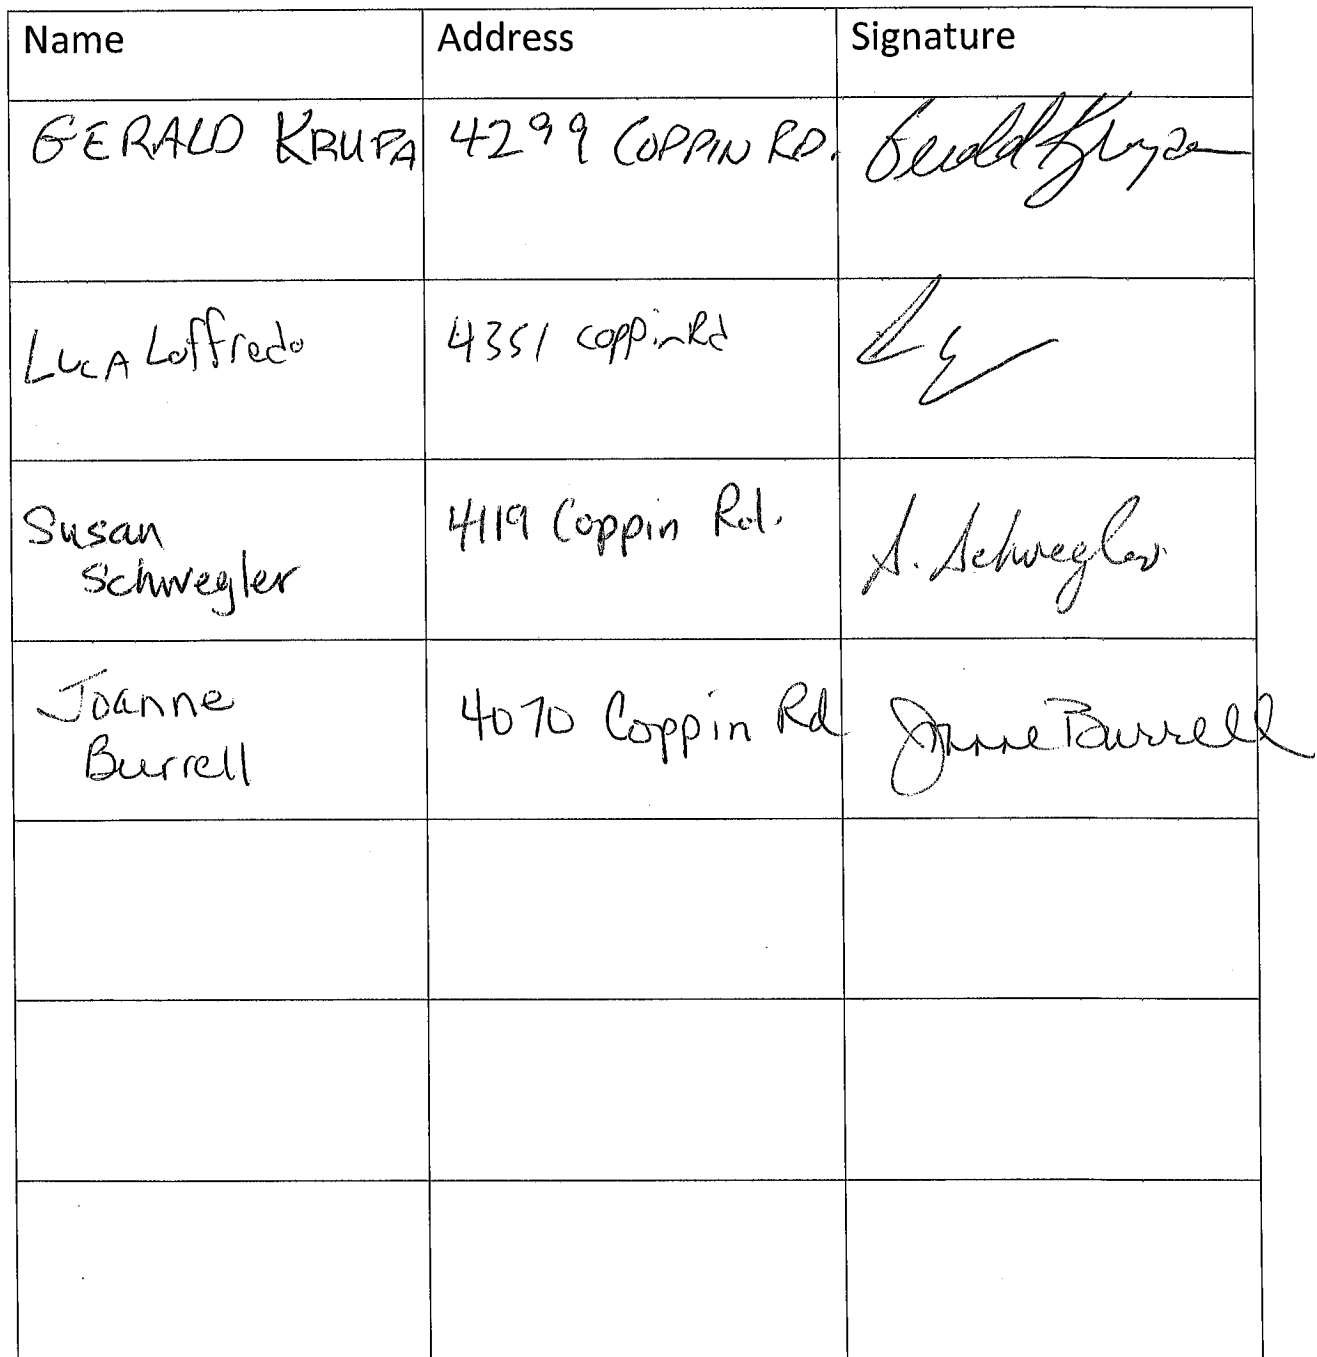 Name Address Signature
GERALD KRUPA 4299 COPPIN RD. Gerald Krupa
LUCA Loffredo 4351 coppin Rd
Susan 4119 Coppin Rd. S. Schwegler
Schwegler
Joanne 4070 Coppin Rd Joanne Burrell
Burrell